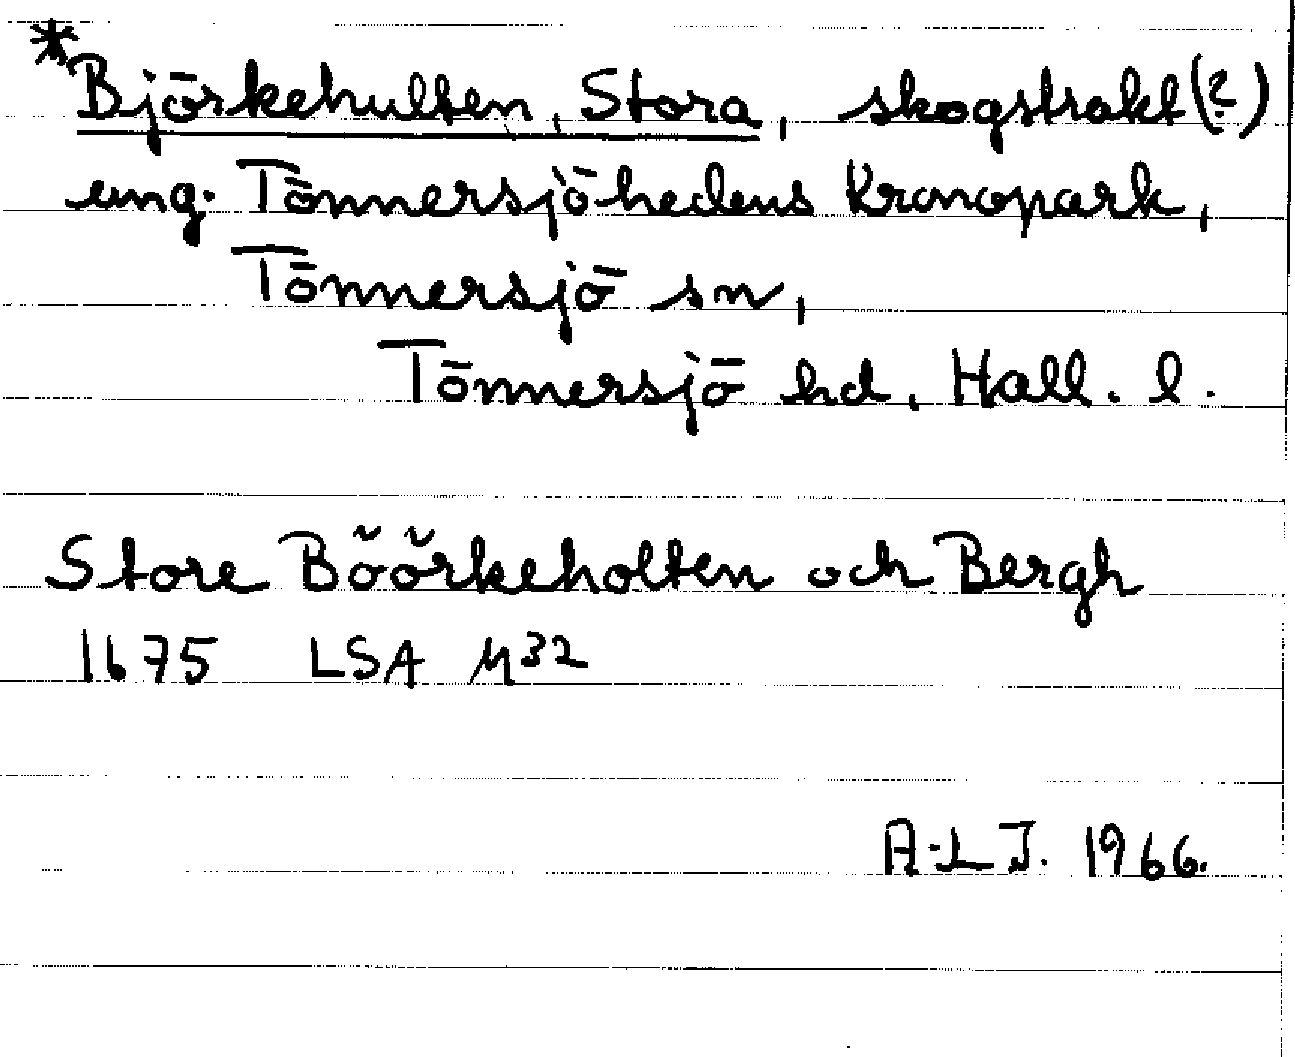 *Björkehulten, Stora, skogstrakt (?)
ung. Tönnersjöhedens Kronopark,
Tönnersjö sn,
Tönnersjö hd, Hall. l.
Store Böörkeholten och Bergh
1675 LSA M32
A-L J. 1966.